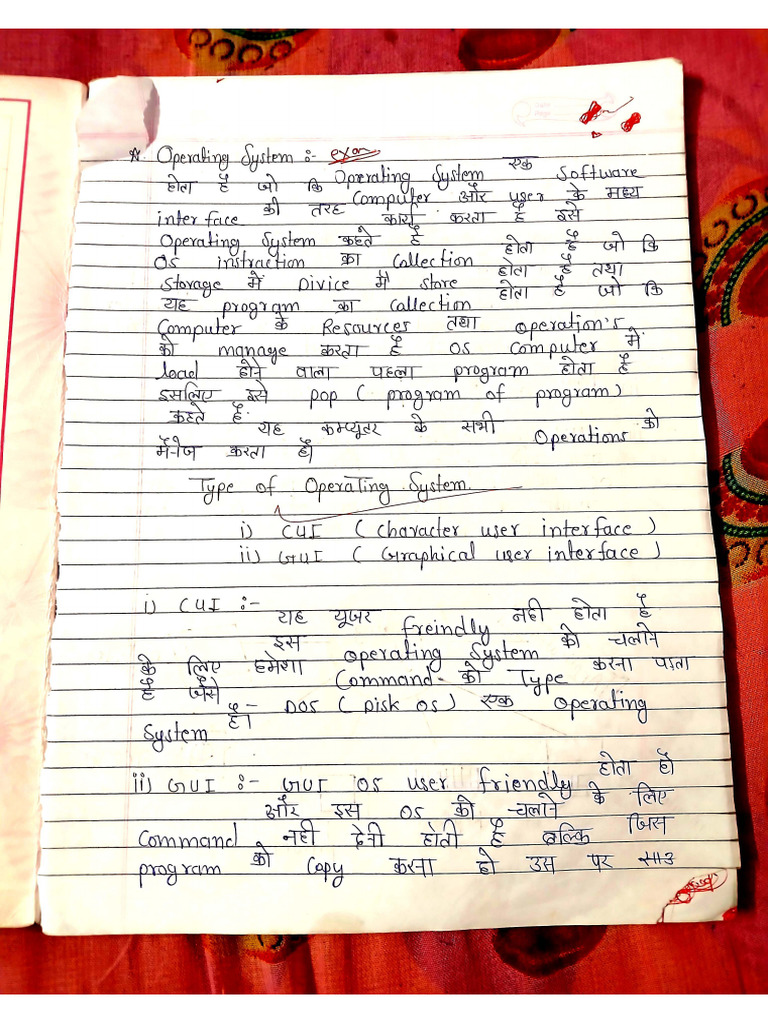 ☆. Operating System :- exam
Operating System एक Software
होता है जो कि Computer और user के मध्य
interface की तरह कार्य करता है इसे
Operating System कहते है
OS instraction का Callection होता है जो कि
Storage में Divice मैं store होता है तथा
यह program का Callection होता है जो कि
Computer के Resources तथा operation's
को manage करता है OS Computer में
load होने वाला पहला program होता है
इसलिए इसे pop ( program of program)
कहते है.
यह कम्प्यूटर के सभी Operations को
मैनेज करता हैं।
Type of Operating System.
i) CUI ( Character user interface )
ii) GUI ( Graphical user interface )
i) CUI :-
यह यूजर freindly नही होता है
इस Operating System को चलाने
के लिए हमेशा Command को Type करना पड़ता
है जैसे - DOS ( Disk OS ) एक Operating
System है।
ii) GUI :- GUI OS user friendly होता हैं
और इस OS को चलाने के लिए
Command नही देनी होती है बल्कि जिस
program को Copy करना हो उस पर